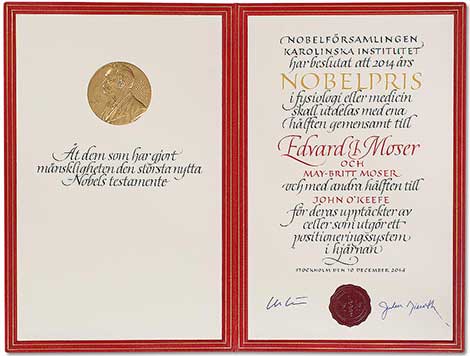 Åt dem som har gjort
mänskligheten den största nytta
Nobels testamente
NOBELFÖRSAMLINGEN
KAROLINSKA INSTITUTET
har beslutat att 2014 års
NOBELPRIS
i fysiologi eller medicin
skall utdelas med ena
hälften gemensamt till
Edvard I Moser
OCH
MAY-BRITT MOSER
och med andra hälften till
JOHN O'KEEFE
för deras upptäckter av
celler som utgör ett
positioneringssystem
i hjärnan
STOCKHOLM DEN 10 DECEMBER 2014